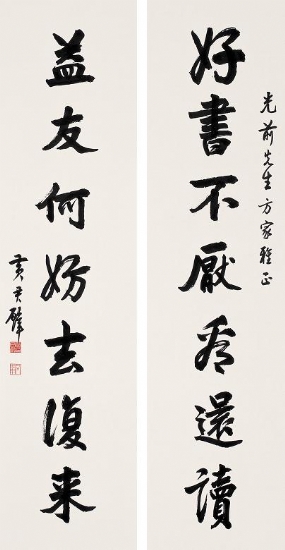 光前先生方家雅正
好書不厭看還讀
益友何妨去復来
黃君璧